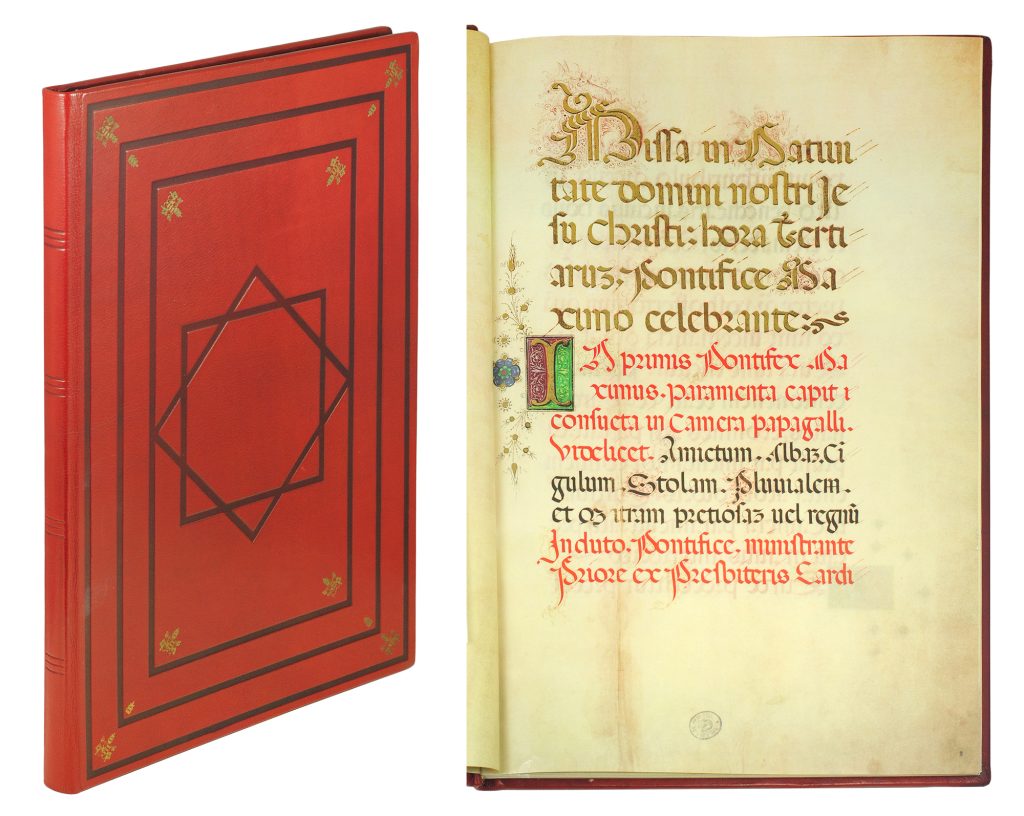 Missa in Natiui
tate domini nostri Je
su Christi: hora Terti
arum. Pontifice Ma
ximo celebrante:
IN primis Pontifex Ma
ximus. paramenta capit i
consueta in Camera papagalli.
Videlicet. Amictum. Albaz. Ci
gulum. Stolam. Pluuialem.
et Mitram pretiosaz uel regnū
Induto. Pontifice. ministrante
Priore ex Presbiteris Cardi